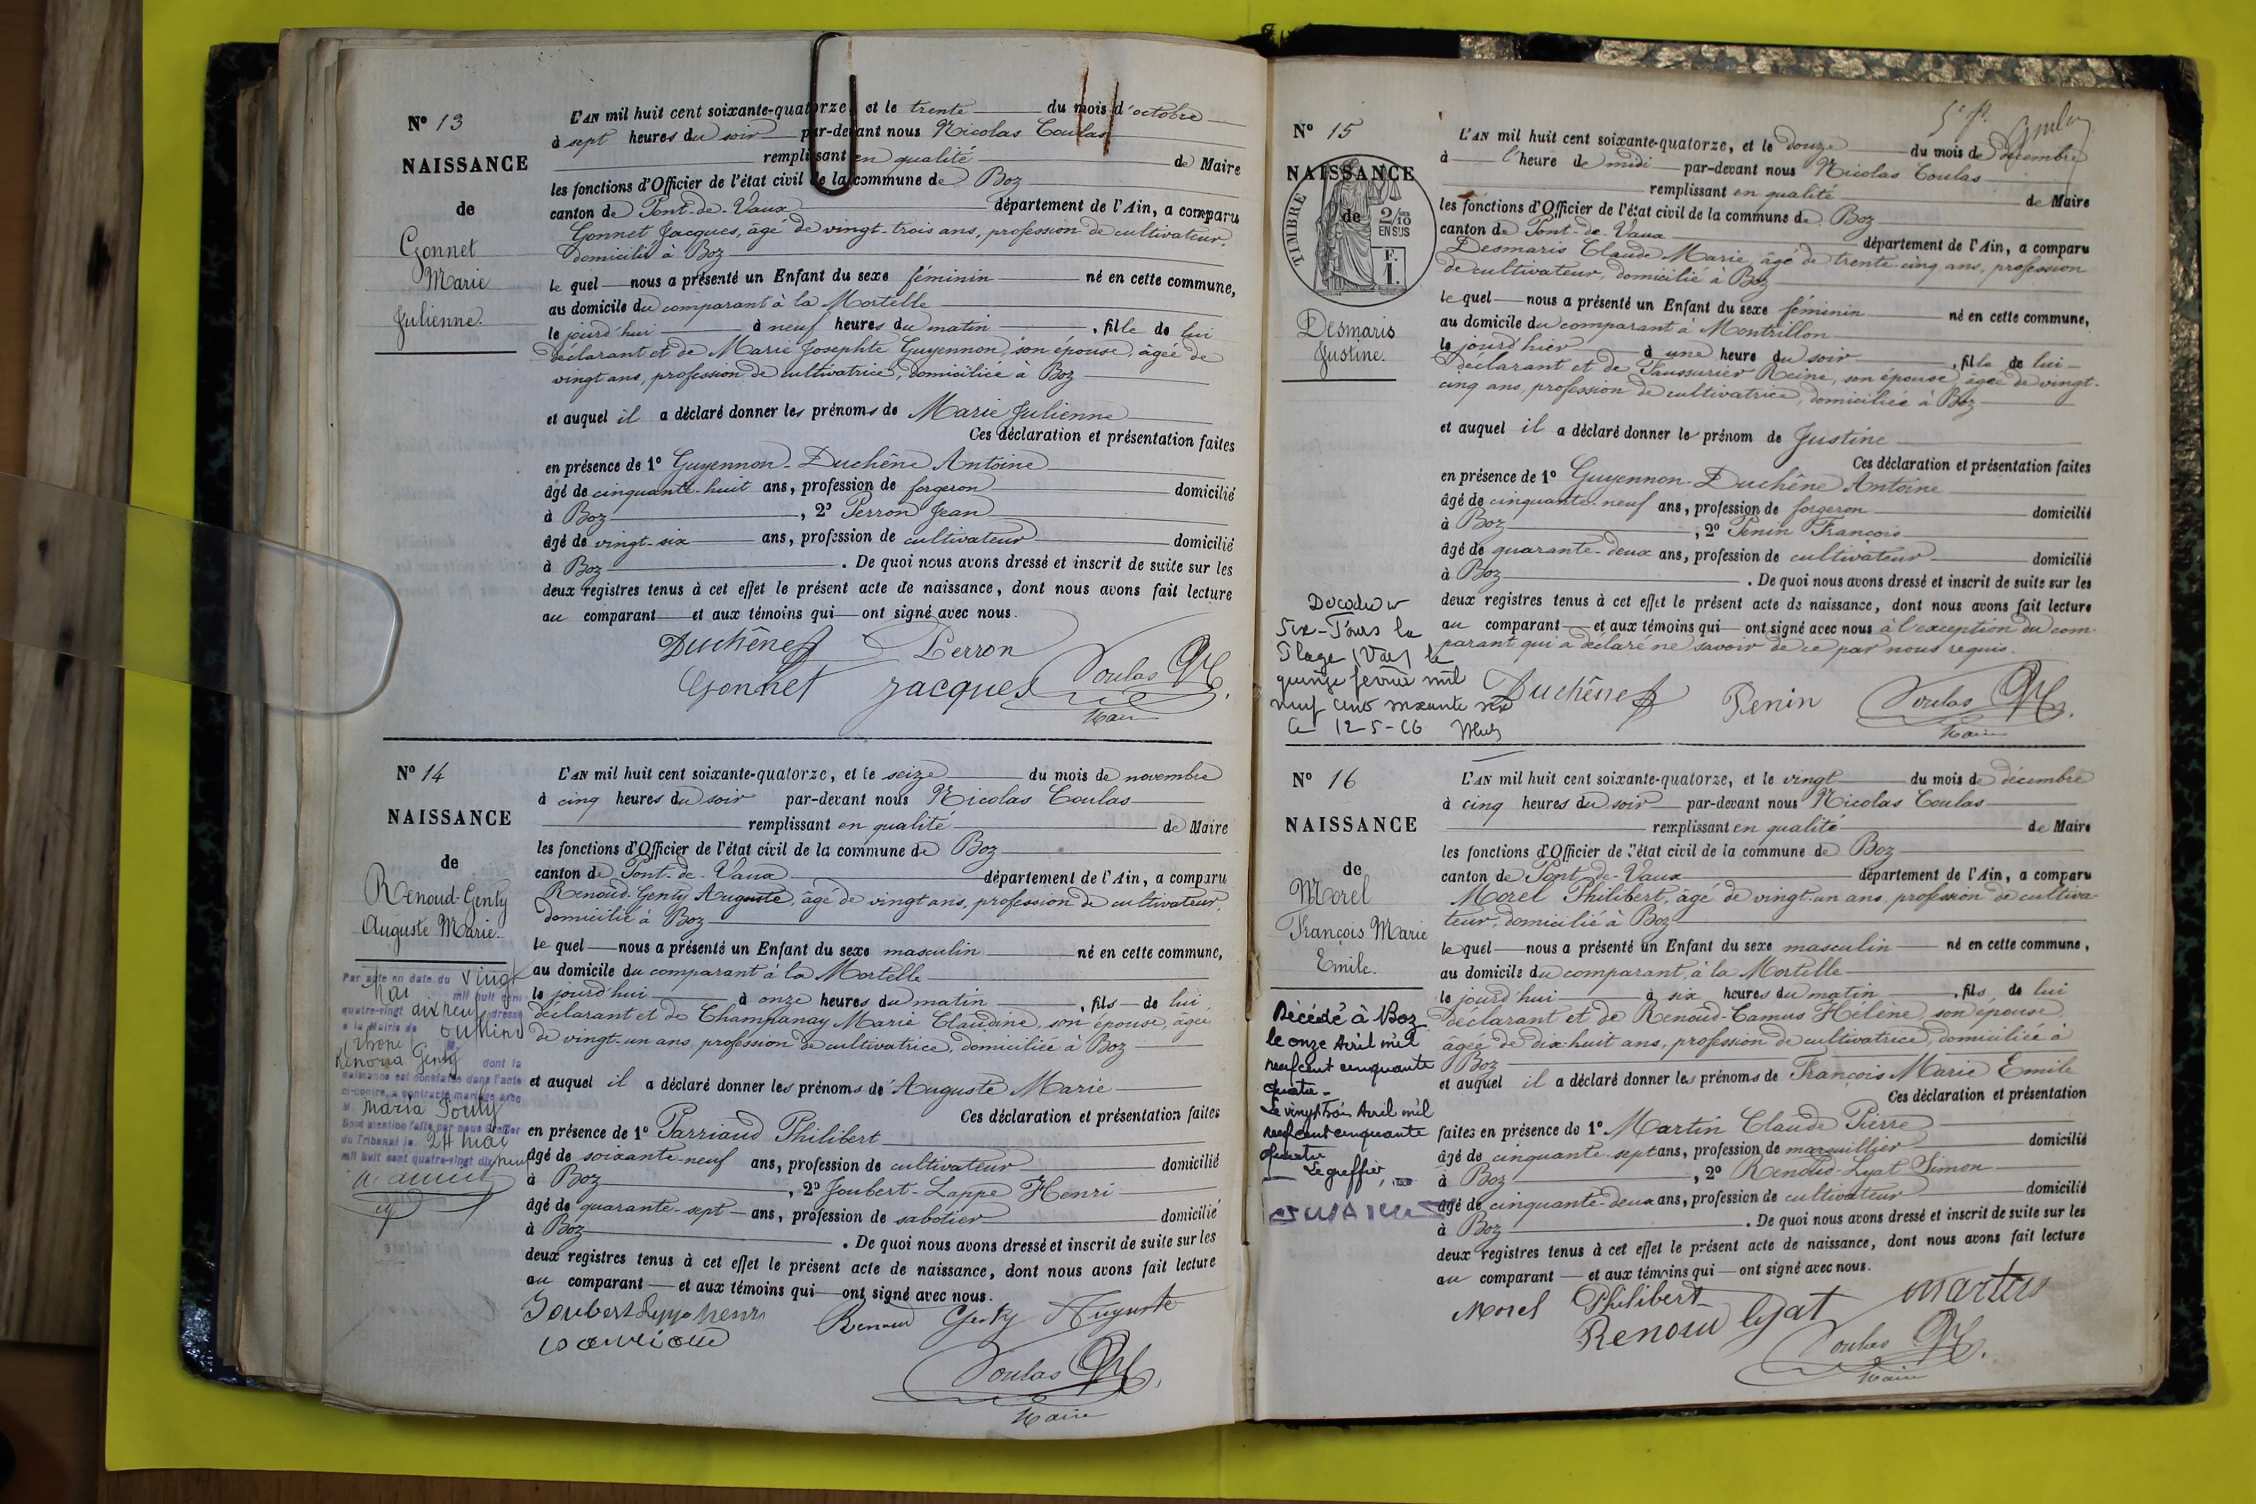 N° 13
NAISSANCE
de
Gonnet
Marie
Julienne.
L'AN mil huit cent soixante-quatorze, et le trente du mois d'octobre
à sept heures du soir par-devant nous Nicolas Coulas
remplissant en qualité de Maire
les fonctions d'Officier de l'état civil de la commune de Boz
canton de Pont-de-Vaux département de l'Ain, a comparu
Gonnet Jacques, âgé de vingt-trois ans, profession de cultivateur,
domicilié à Boz
le quel nous a présenté un Enfant du sexe féminin né en cette commune,
au domicile du comparant à la Mortelle
le jourd'hui à neuf heures du matin, fille de lui
déclarant et de Marie Josephte Guyennon, son épouse, âgée de
vingt ans, profession de cultivatrice, domiciliée à Boz
et auquel il a déclaré donner les prénoms de Marie Julienne
Ces déclaration et présentation faites
en présence de 1° Guyennon-Duchêne Antoine
âgé de cinquante-huit ans, profession de forgeron domicilié
à Boz, 2° Perron Jean
âgé de vingt-six ans, profession de cultivateur domicilié
à Boz. De quoi nous avons dressé et inscrit de suite sur les
deux registres tenus à cet effet le présent acte de naissance, dont nous avons fait lecture
au comparant et aux témoins qui ont signé avec nous.
Duchêne Perron
Gonnet Jacques Coulas
Maire
N° 14
NAISSANCE
de
Renoud-Genty
Auguste Marie.
Par acte en date du vingt
Mai mil huit cent
quatre-vingt dix neuf dressé
à la Mairie de Oullins
(Rhône) M.
Renoud Genty dont la
naissance est constatée dans l'acte
ci-contre, a contracté mariage avec
M. Maria Pouly
Dont mention faite par nous Greffier
du Tribunal le 24 mai
mil huit cent quatre-vingt dix neuf
L'AN mil huit cent soixante-quatorze, et le seize du mois de novembre
à cinq heures du soir par-devant nous Nicolas Coulas
remplissant en qualité de Maire
les fonctions d'Officier de l'état civil de la commune de Boz
canton de Pont-de-Vaux département de l'Ain, a comparu
Renoud-Genty Auguste, âgé de vingt ans, profession de cultivateur,
domicilié à Boz
le quel nous a présenté un Enfant du sexe masculin né en cette commune,
au domicile du comparant à la Mortelle
le jourd'hui à onze heures du matin, fils de lui
déclarant et de Champanay Marie Claudine, son épouse, âgée
de vingt-un ans, profession de cultivatrice, domiciliée à Boz
et auquel il a déclaré donner les prénoms de Auguste Marie
Ces déclaration et présentation faites
en présence de 1° Parriaud Philibert
âgé de soixante-neuf ans, profession de cultivateur domicilié
à Boz, 2° Joubert-Lappe Henri
âgé de quarante-sept ans, profession de sabotier domicilié
à Boz. De quoi nous avons dressé et inscrit de suite sur les
deux registres tenus à cet effet le présent acte de naissance, dont nous avons fait lecture
au comparant et aux témoins qui ont signé avec nous.
Joubert Lappe henri Renoud Genty Auguste
Coulas
Maire
N° 15
NAISSANCE
de
TIMBRE
2/10
EN SUS
F.
1.
Desmaris
Justine.
L'AN mil huit cent soixante-quatorze, et le douze du mois de décembre
à l'heure de midi par-devant nous Nicolas Coulas
remplissant en qualité de Maire
les fonctions d'Officier de l'état civil de la commune de Boz
canton de Pont-de-Vaux département de l'Ain, a comparu
Desmaris Claude Marie, âgé de trente-cinq ans, profession
de cultivateur, domicilié à Boz
le quel nous a présenté un Enfant du sexe féminin né en cette commune,
au domicile du comparant à Montrillon
le jourd'hier à une heure du soir, fille de lui
déclarant et de Saussurier Reine, son épouse, âgée de vingt-
cinq ans, profession de cultivatrice, domiciliée à Boz
et auquel il a déclaré donner le prénom de Justine
Ces déclaration et présentation faites
en présence de 1° Guyennon-Duchêne Antoine
âgé de cinquante-neuf ans, profession de forgeron domicilié
à Boz, 2° Penin François
âgé de quarante-deux ans, profession de cultivateur domicilié
à Boz. De quoi nous avons dressé et inscrit de suite sur les
deux registres tenus à cet effet le présent acte de naissance, dont nous avons fait lecture
au comparant et aux témoins qui ont signé avec nous à l'exception du com-
parant qui a déclaré ne savoir de ce par nous requis.
Six-Fours la
Plage (Var) le
quinze février mil
neuf cent soixante six
Le 12-5-66
Duchêne Penin Coulas
Maire
N° 16
NAISSANCE
de
Morel
François Marie
Emile.
Décédé à Boz
le onze Avril mil
neuf cent cinquante
quatre -
Le vingt trois Avril mil
neuf cent cinquante
quatre
Le greffier,
L'AN mil huit cent soixante-quatorze, et le vingt du mois de décembre
à cinq heures du soir par-devant nous Nicolas Coulas
remplissant en qualité de Maire
les fonctions d'Officier de l'état civil de la commune de Boz
canton de Pont-de-Vaux département de l'Ain, a comparu
Morel Philibert, âgé de vingt-un ans, profession de cultiva-
teur, domicilié à Boz
le quel nous a présenté un Enfant du sexe masculin né en cette commune,
au domicile du comparant, à la Mortelle
le jourd'hui à six heures du matin, fils de lui
déclarant et de Renoud-Camus Hélène, son épouse,
âgée de dix-huit ans, profession de cultivatrice, domiciliée à
Boz
et auquel il a déclaré donner les prénoms de François Marie Emile
Ces déclaration et présentation
faites en présence de 1° Martin Claude Pierre
âgé de cinquante-sept ans, profession de marguillier domicilié
à Boz, 2° Renoud-Lyat Simon
âgé de cinquante-deux ans, profession de cultivateur domicilié
à Boz. De quoi nous avons dressé et inscrit de suite sur les
deux registres tenus à cet effet le présent acte de naissance, dont nous avons fait lecture
au comparant et aux témoins qui ont signé avec nous.
Morel Philibert martin
Renoud lyat
Coulas
Maire